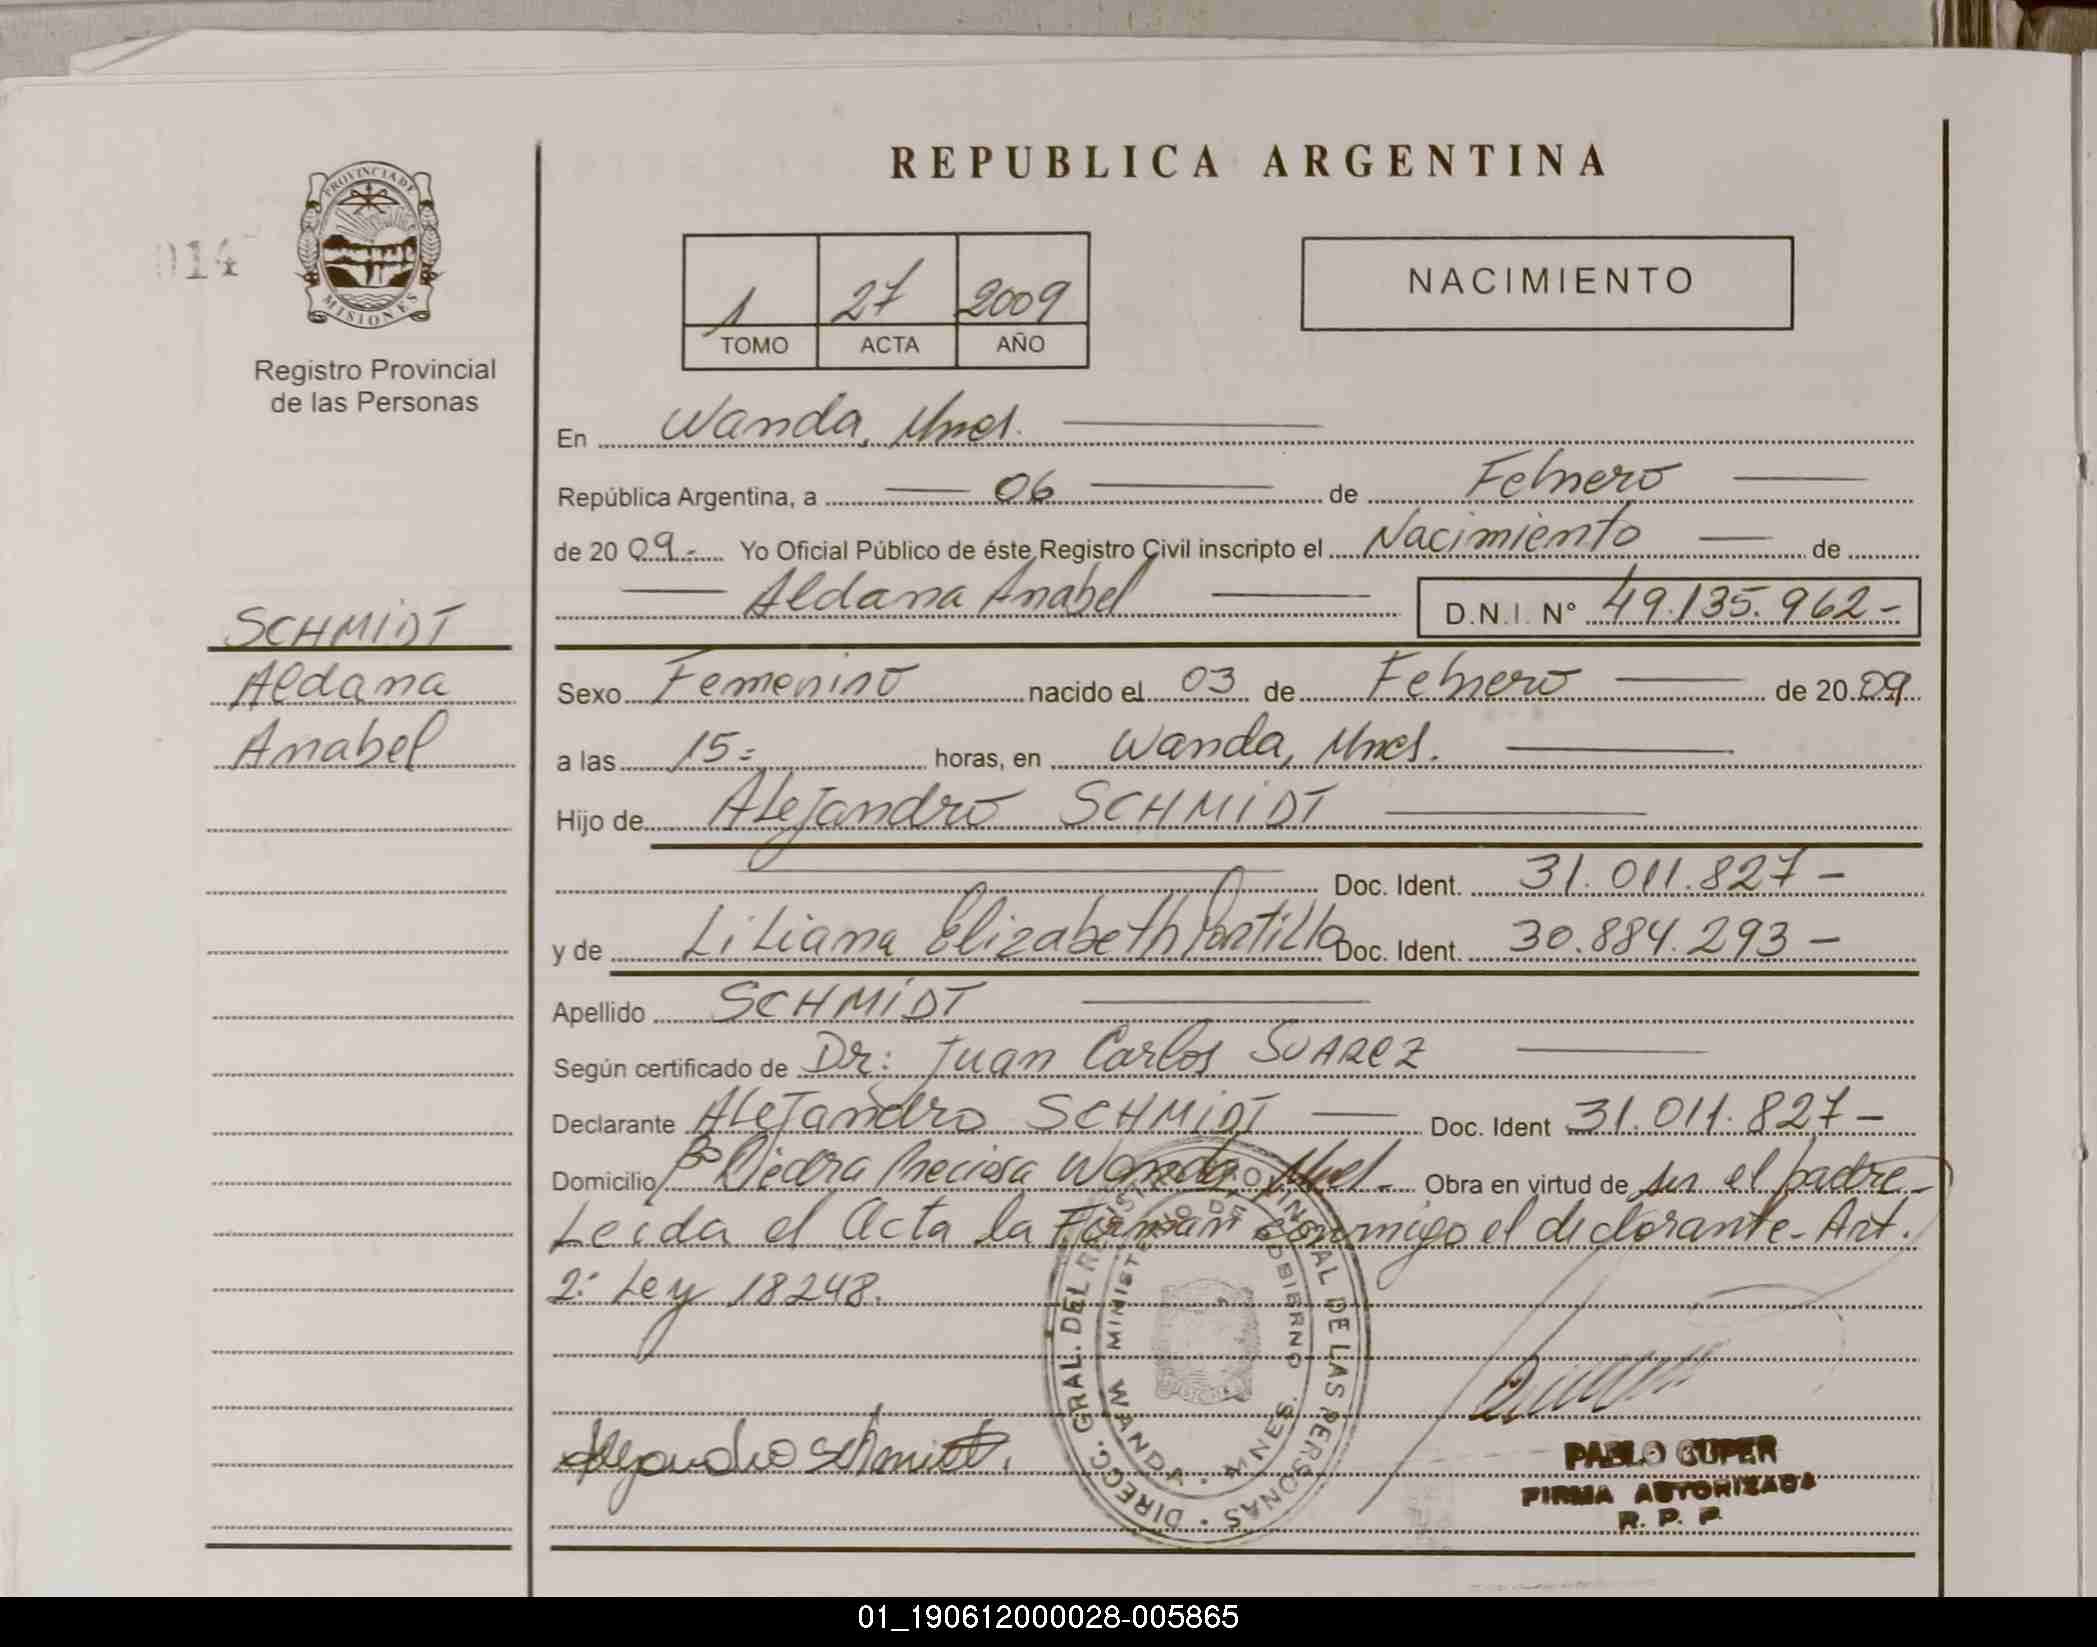 REPUBLICA ARGENTINA
014
PROVINCIA DE
MISIONES
Registro Provincial
de las Personas
1 27 2009
TOMO ACTA AÑO
NACIMIENTO
En Wanda, Mnes.
República Argentina, a 06 de Febrero
de 2009.- Yo Oficial Público de éste Registro Civil inscripto el Nacimiento de
Aldana Anabel D.N.I. Nº 49.135.962-
SCHMIDT
Aldana
Anabel
Sexo Femenino nacido el 03 de Febrero de 2009
a las 15= horas, en Wanda, Mnes.
Hijo de Alejandro SCHMIDT
Doc. Ident. 31.011.827-
y de Liliana Elizabeth Portillo Doc. Ident. 30.884.293-
Apellido SCHMIDT
Según certificado de Dr: Juan Carlos SUAREZ
Declarante Alejandro SCHMIDT Doc. Ident 31.011.827-
Domicilio Bº Piedra Preciosa Wanda, Mnes- Obra en virtud de ser el padre-
Leida el Acta la Firman conmigo el declarante-Art.
2: Ley 18248.
DIRECC. GRAL. DEL REGISTRO PROVINCIAL DE LAS PERSONAS
MINISTERIO DE GOBIERNO
WANDA - MNES.
Alejandro Schmidt.
PABLO GUPER
FIRMA AUTORIZADA
R. P. P.
01_190612000028-005865